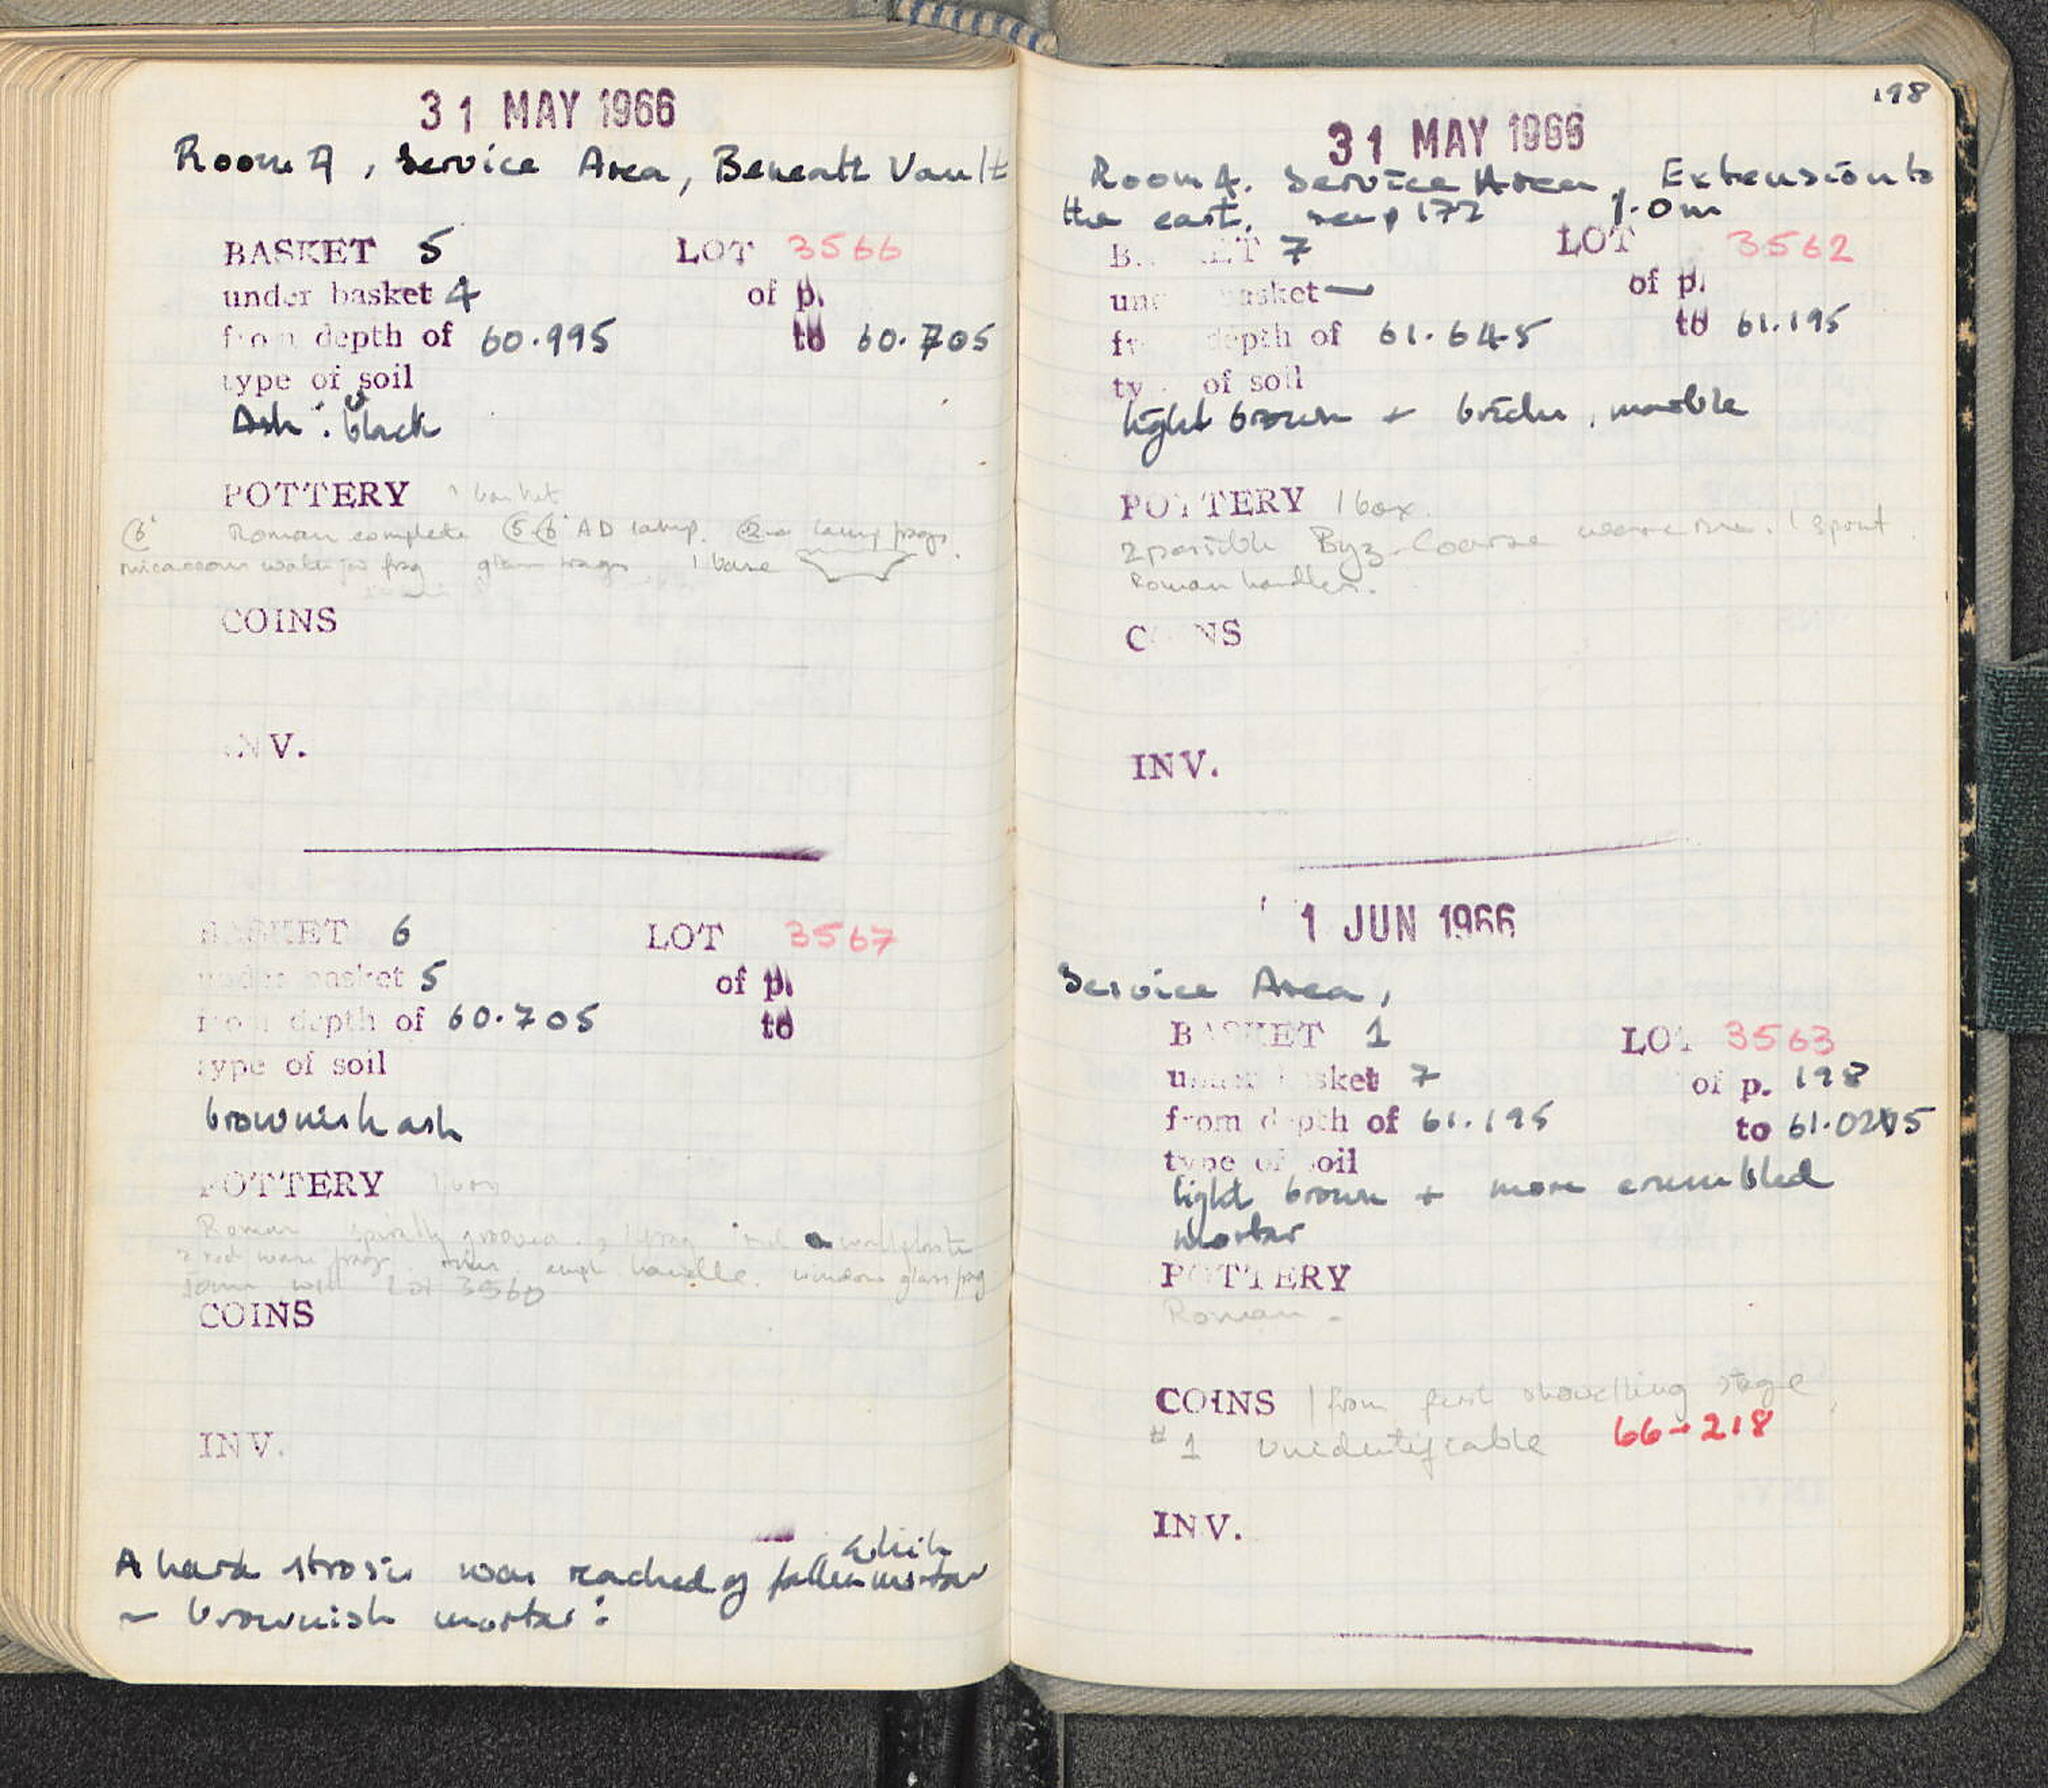 31 MAY 1966
Room 4, Service Area, Beneath Vault
BASKET 5 LOT 3566
under basket 4 of p.
from depth of 60.995 to 60.705
type of soil
Ash : black
POTTERY 1 basket
Roman complete AD lamp. lamp frags.
micaceous water jar frag glass frags 1 base
COINS
INV.
BASKET 6 LOT 3567
under basket 5 of p.
from depth of 60.705 to
type of soil
brownish ash
POTTERY 1 box
Roman spirally grooved wallplaster
2 red ware frags. handle. window glass frag
Lot 3560
COINS
INV.
A hard was reached of fallen mortar
~ brownish mortar:
198
31 MAY 1966
Room 4. Service Area, Extension to
the east. see p 172 1.0m
BASKET 7 LOT 3562
under basket — of p.
from depth of 61.645 to 61.195
type of soil
light brown + bricks, marble
POTTERY 1 box.
2 possible Byz. Coarse ware 1 spout.
Roman handles.
COINS
INV.
1 JUN 1966
Service Area,
BASKET 1 LOT 3563
under basket 7 of p. 198
from depth of 61.195 to
type of soil
light brown + more crumbled
mortar
POTTERY
Roman -
COINS 1 from first shovelling stage
#1 unidentifiable 66-218
INV.